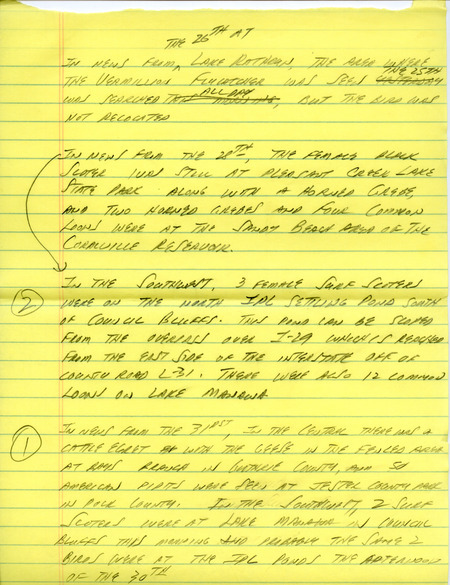 THE 26TH AT
IN NEWS FROM, LAKE ROTHERN, THE AREA WHERE
THE 25TH
THE VERMILLION FLYCATCHER WAS SEEN YESTERDAY
ALL DAY
WAS SEARCHED THIS MORNING, BUT THE BIRD WAS
NOT RELOCATED
IN NEWS FROM THE 28TH, THE FEMALE BLACK
SCOTER WAS STILL AT PLEASANT CREEK LAKE
STATE PARK ALONG WITH A HORNED GREBE,
AND TWO HORNED GREBES AND FOUR COMMON
LOONS WERE AT THE SANDY BEACH AREA OF THE
CORALVILLE RESERVOIR.
IN THE SOUTHWEST, 3 FEMALE SURF SCOTERS
WERE ON THE NORTH IPL SETTLING POND SOUTH
② OF COUNCIL BLUFFS. THIS POND CAN BE SCOPED
FROM THE OVERPASS OVER I-29 WHICH IS REACHED
FROM THE EAST SIDE OF THE INTERSTATE OFF OF
COUNTY ROAD L-31. THERE WERE ALSO 12 COMMON
LOONS ON LAKE MANAWA
① IN NEWS FROM THE 31ST, IN THE CENTRAL THERE WAS A
CATTLE EGRET WITH THE GEESE IN THE FENCED AREA
AT BAYS BRANCH IN GUTHRIE COUNTY, AND 54
AMERICAN PIPITS WERE SEEN AT JESTER COUNTY PARK
IN POLK COUNTY. IN THE SOUTHWEST, 2 SURF
SCOTERS WERE AT LAKE MANAWA IN COUNCIL
BLUFFS THIS MORNING AND PROBABLY THE SAME 2
BIRDS WERE AT THE IPL PONDS THE AFTERNOON
OF THE 30TH